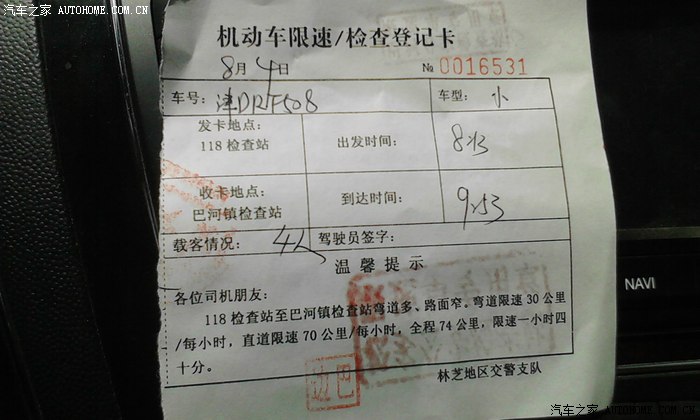 汽车之家 AUTOHOME.COM.CN
机动车限速/检查登记卡
8月4日 № 0016531
车号: 津DRF508 车型: 小
发卡地点: 118 检查站 出发时间: 8:13
收卡地点: 巴河镇检查站 到达时间: 9:53
载客情况: 4人 驾驶员签字:
温馨提示
各位司机朋友:
118 检查站至巴河镇检查站弯道多、路面窄。弯道限速 30 公里
/每小时，直道限速 70 公里/每小时，全程 74 公里，限速一小时四
十分。
林芝地区交警支队
NAVI
汽车之家 AUTOHOME.COM.CN